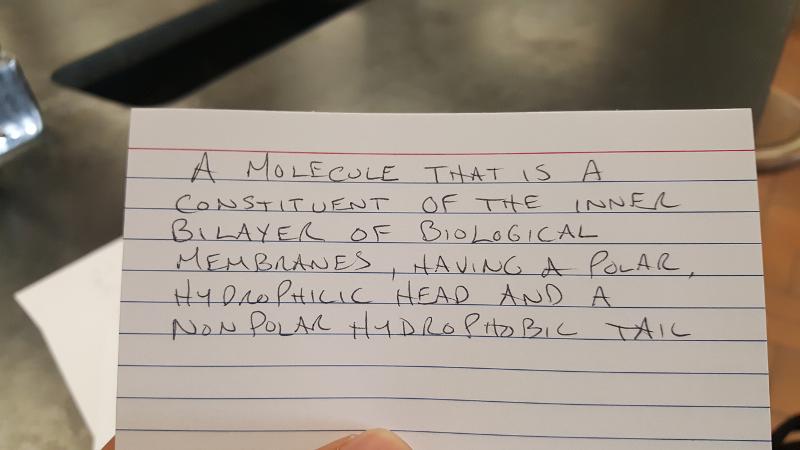 A MOLECULE THAT IS A
CONSTITUENT OF THE INNER
BILAYER OF BIOLOGICAL
MEMBRANES, HAVING A POLAR,
HYDROPHILIC HEAD AND A
NONPOLAR HYDROPHOBIC TAIL